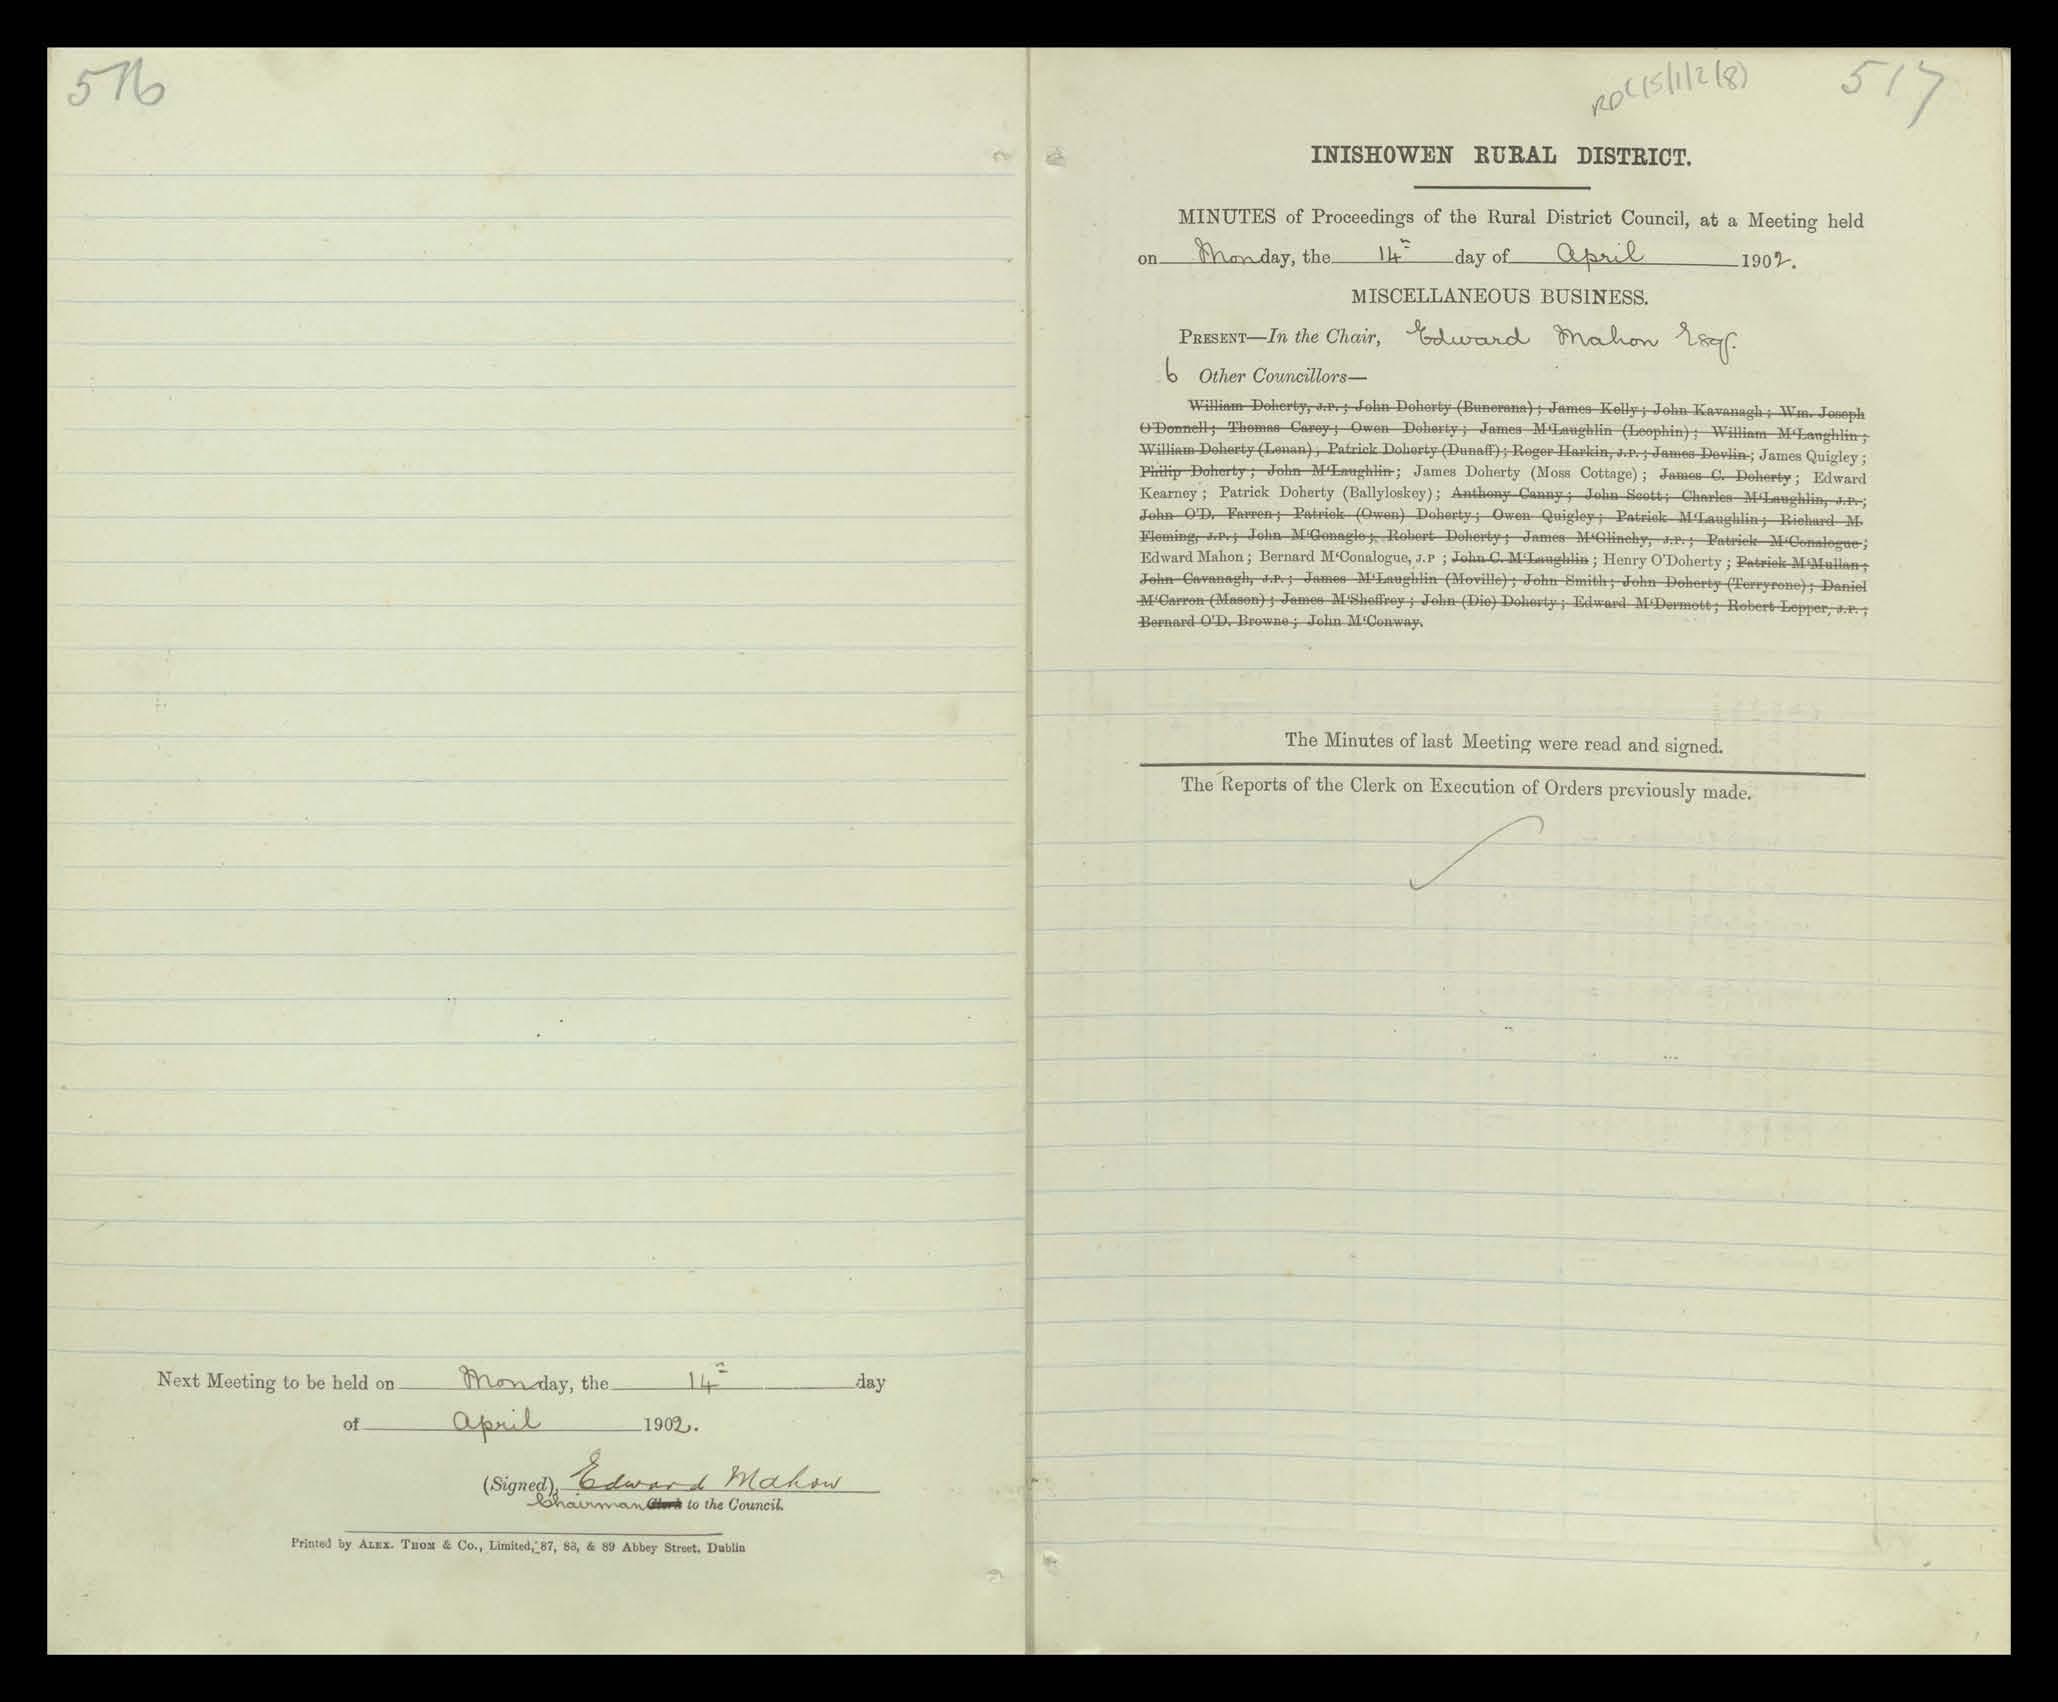 516
Next Meeting to be held on Monday, the 14th day
of April 1902.
(Signed), Edward Mahon
Chairman Clerk to the Council.
Printed by ALEX. THOM & Co., Limited, 87, 88, & 89 Abbey Street, Dublin
RDC/5/1/2(8)
517
INISHOWEN RURAL DISTRICT.
MINUTES of Proceedings of the Rural District Council, at a Meeting held
on Monday, the 14th day of April 1902.
MISCELLANEOUS BUSINESS.
PRESENT—In the Chair, Edward Mahon Esqr.
6 Other Councillors—
William Doherty, J.P.; John Doherty (Buncrana); James Kelly; John Kavanagh; Wm. Joseph
O'Donnell; Thomas Carey; Owen Doherty; James M'Laughlin (Leophin); William M'Laughlin;
William Doherty (Lenan); Patrick Doherty (Dunaff); Roger Harkin, J.P.; James Devlin; James Quigley;
Philip Doherty; John M'Laughlin; James Doherty (Moss Cottage); James C. Doherty; Edward
Kearney; Patrick Doherty (Ballyloskey); Anthony Canny; John Scott; Charles M'Laughlin, J.P.;
John O'D. Farren; Patrick (Owen) Doherty; Owen Quigley; Patrick M'Laughlin; Richard M.
Fleming, J.P.; John M'Gonagle; Robert Doherty; James M'Glinchy, J.P.; Patrick M'Conalogue;
Edward Mahon; Bernard M'Conalogue, J.P; John C. M'Laughlin; Henry O'Doherty; Patrick M'Mullan;
John Cavanagh, J.P.; James M'Laughlin (Moville); John Smith; John Doherty (Terryrone); Daniel
M'Carron (Mason); James M'Sheffrey; John (Die) Doherty; Edward M'Dermott; Robert Lepper, J.P.;
Bernard O'D. Browne; John M'Conway.
The Minutes of last Meeting were read and signed.
The Reports of the Clerk on Execution of Orders previously made.